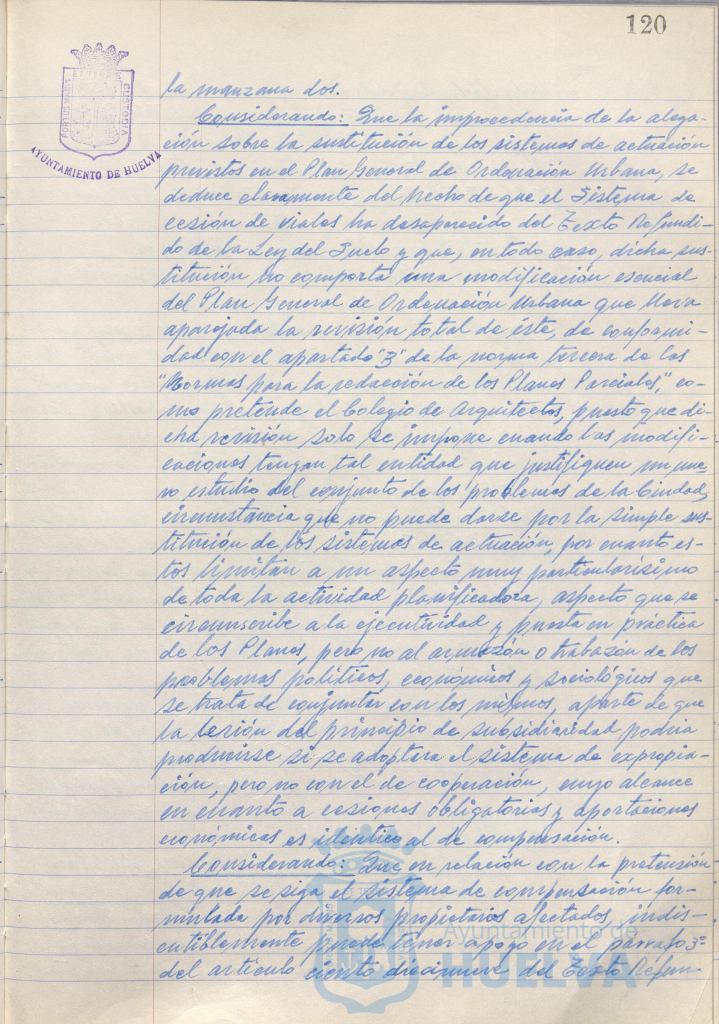 120
PORTUS MARIS ET TERRE CUSTODIA
AYUNTAMIENTO DE HUELVA
la manzana dos.
Considerando: Que la improcedencia de la alega-
ción sobre la sustitución de los sistemas de actuación
previstos en el Plan General de Ordenación Urbana, se
deduce claramente del hecho de que el Sistema de
cesión de viales ha desaparecido del Texto Refundi-
do de la Ley del Suelo y que, en todo caso, dicha sus-
titución no comporta una modificación esencial
del Plan General de Ordenación Urbana que lleva
aparejada la revisión total de éste, de conformi-
dad con el apartado "3" de la norma tercera de las
"Normas para la redacción de los Planes Parciales", co-
mo pretende el Colegio de Arquitectos, puesto que di-
cha revisión solo se impone cuando las modifi-
caciones tengan tal entidad que justifiquen un nue-
vo estudio del conjunto de los problemas de la Ciudad,
circunstancia que no puede darse por la simple sus-
titución de los sistemas de actuación, por cuanto es-
tos limitan a un aspecto muy particularísimo
de toda la actividad planificadora, aspecto que se
circunscribe a la ejecutividad y puesta en práctica
de los Planes, pero no al armazón o trabazón de los
problemas políticos, económicos y sociológicos que
se trata de conjuntar con los mismos, aparte de que
la lesión del principio de subsidiaridad podría
producirse si se adoptara el sistema de expropia-
ción, pero no con el de cooperación, cuyo alcance
en cuanto a cesiones obligatorias y aportaciones
económicas es idéntico al de compensación.
Considerando: Que en relación con la pretensión
de que se siga el sistema de compensación for-
mulada por diversos propietarios afectados, indis-
cutiblemente puede tener apoyo en el párrafo 3º
del artículo ciento diecinueve del Texto Refun-
Ayuntamiento de
HUELVA